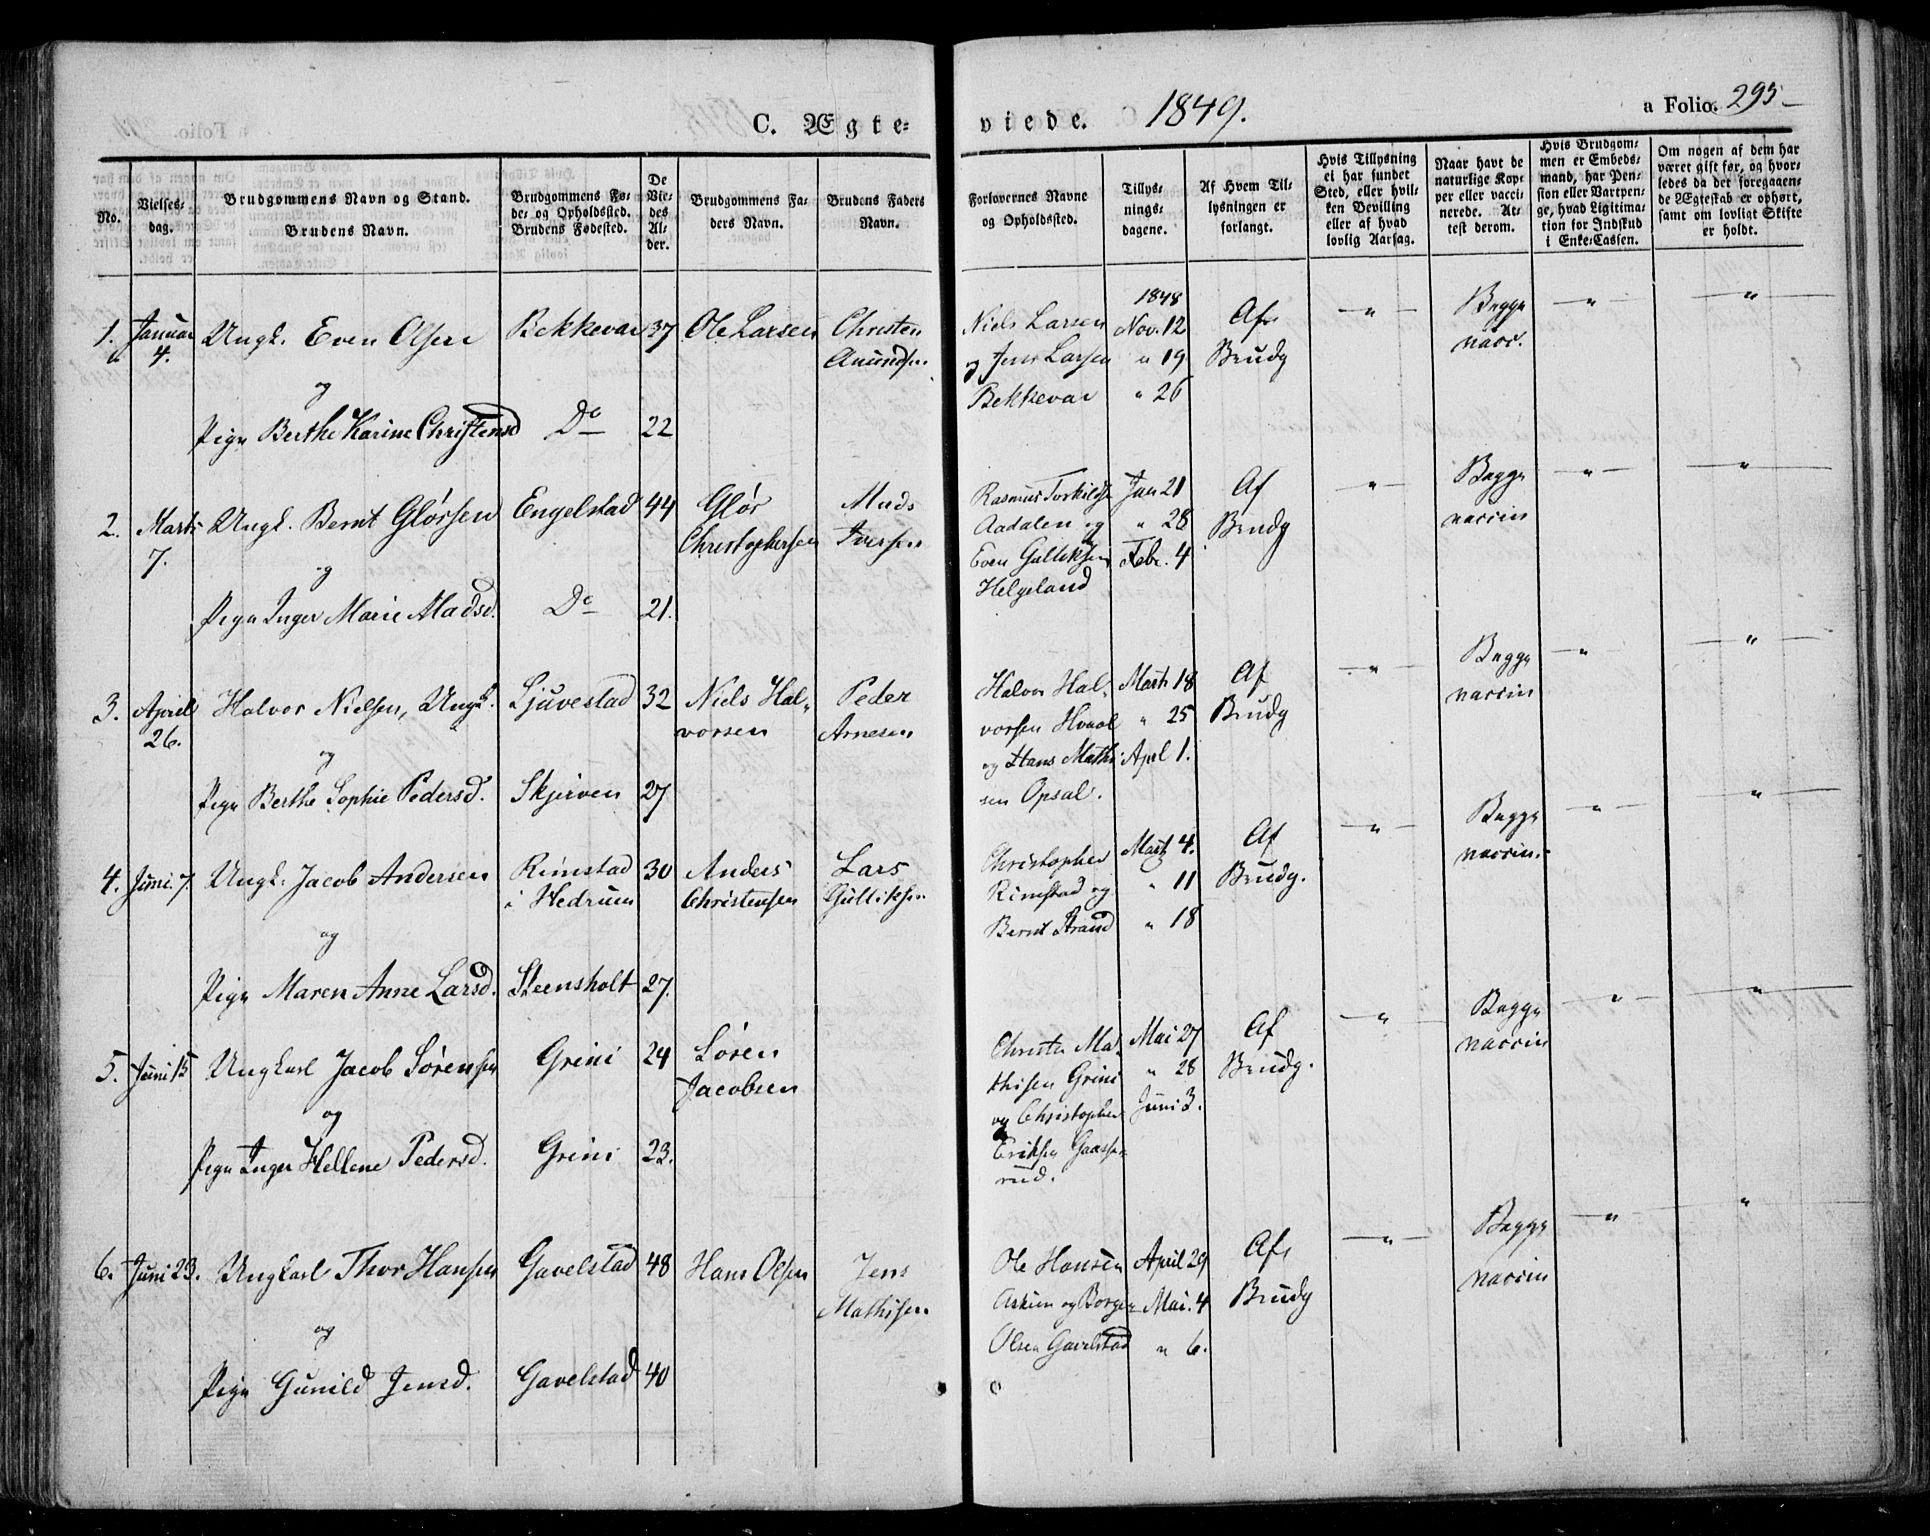 C. Ægte-
viede. 1849.
a Folio. 295
No.
Vielses-
dag.
Brudgommens Navn og Stand.
Brudens Navn.
Brudgommens Fø-
de- og Opholdssted.
Brudens Fødested.
De
Vie-
des
Al-
der.
Brudgommens Fa-
ders Navn.
Brudens Faders
Navn.
Forlovernes Navne
og Opholdssted.
Tillys-
nings-
dagene.
Af Hvem Til-
lysningen er
forlangt.
Hvis Tillysning
ei har fundet
Sted, eller hvil-
ken Bevilling
eller af hvad
lovlig Aarsag.
Naar havt de
naturlige Kop-
per eller vacci-
nerede. At-
test derom.
Hvis Brudgom-
men er Embeds-
mand, har Pen-
sion eller Vartpen-
ge, hvad Ligitima-
tion for Indskud
i Enke-Cassen.
Om nogen af dem har
været gift før, og hvor-
ledes da det foregaaen-
de Ægteskab er ophørt,
samt om lovligt Skifte
er holdt.
1. Januar
4.
Ungk. Even Olsen
og
Pige Berthe Karine Christensd
Bekkevar 37
Do 22
Ole Larsen
Christen
Anundsen
Niels Larsen
og Jens Larsen
Bekkevar
1848
Nov. 12
" 19
" 26
Af
Brudg
"
Begge
vacc.
"
"
2. Marts
7.
Ungk. Bernt Glørsen
og
Pige Inger Marie Madsd.
Engelstad 44
Do 21.
Glør
Christophersen
Mads
Iversen
Rasmus Torkilds
Aadalen og
Even Gulliksen
Helgeland
Jan 21
" 28
Febr. 4
Af
Brudg
"
Begge
vaccin
"
"
3. April
26.
Halvor Nielsen, Ungk.
og
Pige Berthe Sophie Pedersd.
Ljuvestad 32
Skjerven 27
Niels Hal-
vorsen
Peder
Arnesen
Halvor Hal-
vorsen Hvaal
og Hans Mathi-
sen Opsal.
Marts 18
" 25
April 1.
Af
Brudg
"
Begge
vaccin
"
"
4. Juni 7
Ungk. Jacob Andersen
og
Pige Maren Anne Larsd.
Rimstad 30
i Hedrum
Steensholt 27.
Anders
Christensen
Lars
Gulliksen
Christopher
Rimstad og
Bernt Strand
Marts 4.
" 11
" 18
Af
Brudg.
"
Begge
vaccin.
"
"
5. Juni 15
Ungkarl Jacob Sørensen
og
Pige Inger Hellene Pedersd.
Grini 24
Grini 23.
Søren
Jacobsen
Christen Ma-
thisen Grini
og Christopher
Eriksen Gaasse-
rud.
Mai 27
" 28
Juni 3.
Af
Brudg.
"
Begge
vaccin
"
"
6. Juni 23.
Ungkarl Thor Hansen
og
Pige Gunild Jensd.
Gavelstad 48
Gavelstad 40
Hans Olsen
Jens
Mathisen
Ole Hansen
Askim og Borger
Olsen Gavelstad
April 29
Mai. 4
" 6.
Af
Brudg
"
Begge
vaccin
"
"